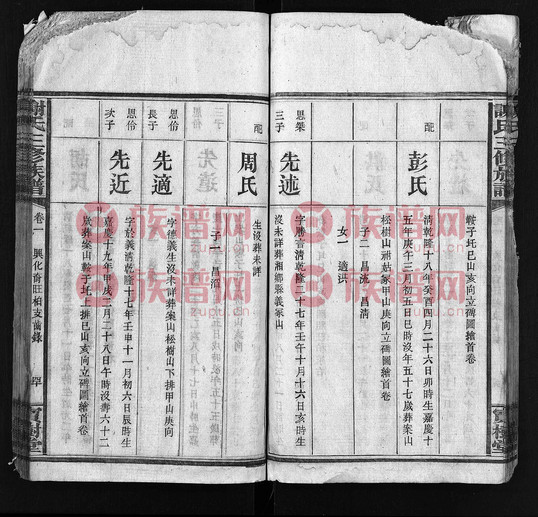 謝氏三修族譜
寶樹堂
鞍子圫巳山亥向立碑圖繪首卷
配
彭氏
清乾隆十八年癸酉四月二十六日卯時生嘉慶十
五年庚午三月初五日巳時沒年五十七歲葬案山
松樹山祔姑冢甲山庚向立碑圖繪首卷
子二 昌流 昌清
女一 適洪
思榮
三子
先述
字勝言清乾隆二十七年壬午十月十六日亥時生
沒未詳葬湘鄉縣義冢山
配
周氏
生沒葬未詳
子一 昌滔
思伶
長子
先適
字德義生沒未詳葬案山松樹山下排甲山庚向
思伶
次子
先近
字於義清乾隆十七年壬申十一月初六日辰時生
嘉慶十九年甲戌二月二十八日午時沒壽六十二
歲葬案山鞍子圫上排巳山亥向立碑圖繪首卷
謝氏三修族譜
卷一
興化
旺柏支齒錄
寶樹堂
族谱网
zupu.cn
族谱网
zupu.cn
族谱网
zupu.cn
族谱网
zupu.cn